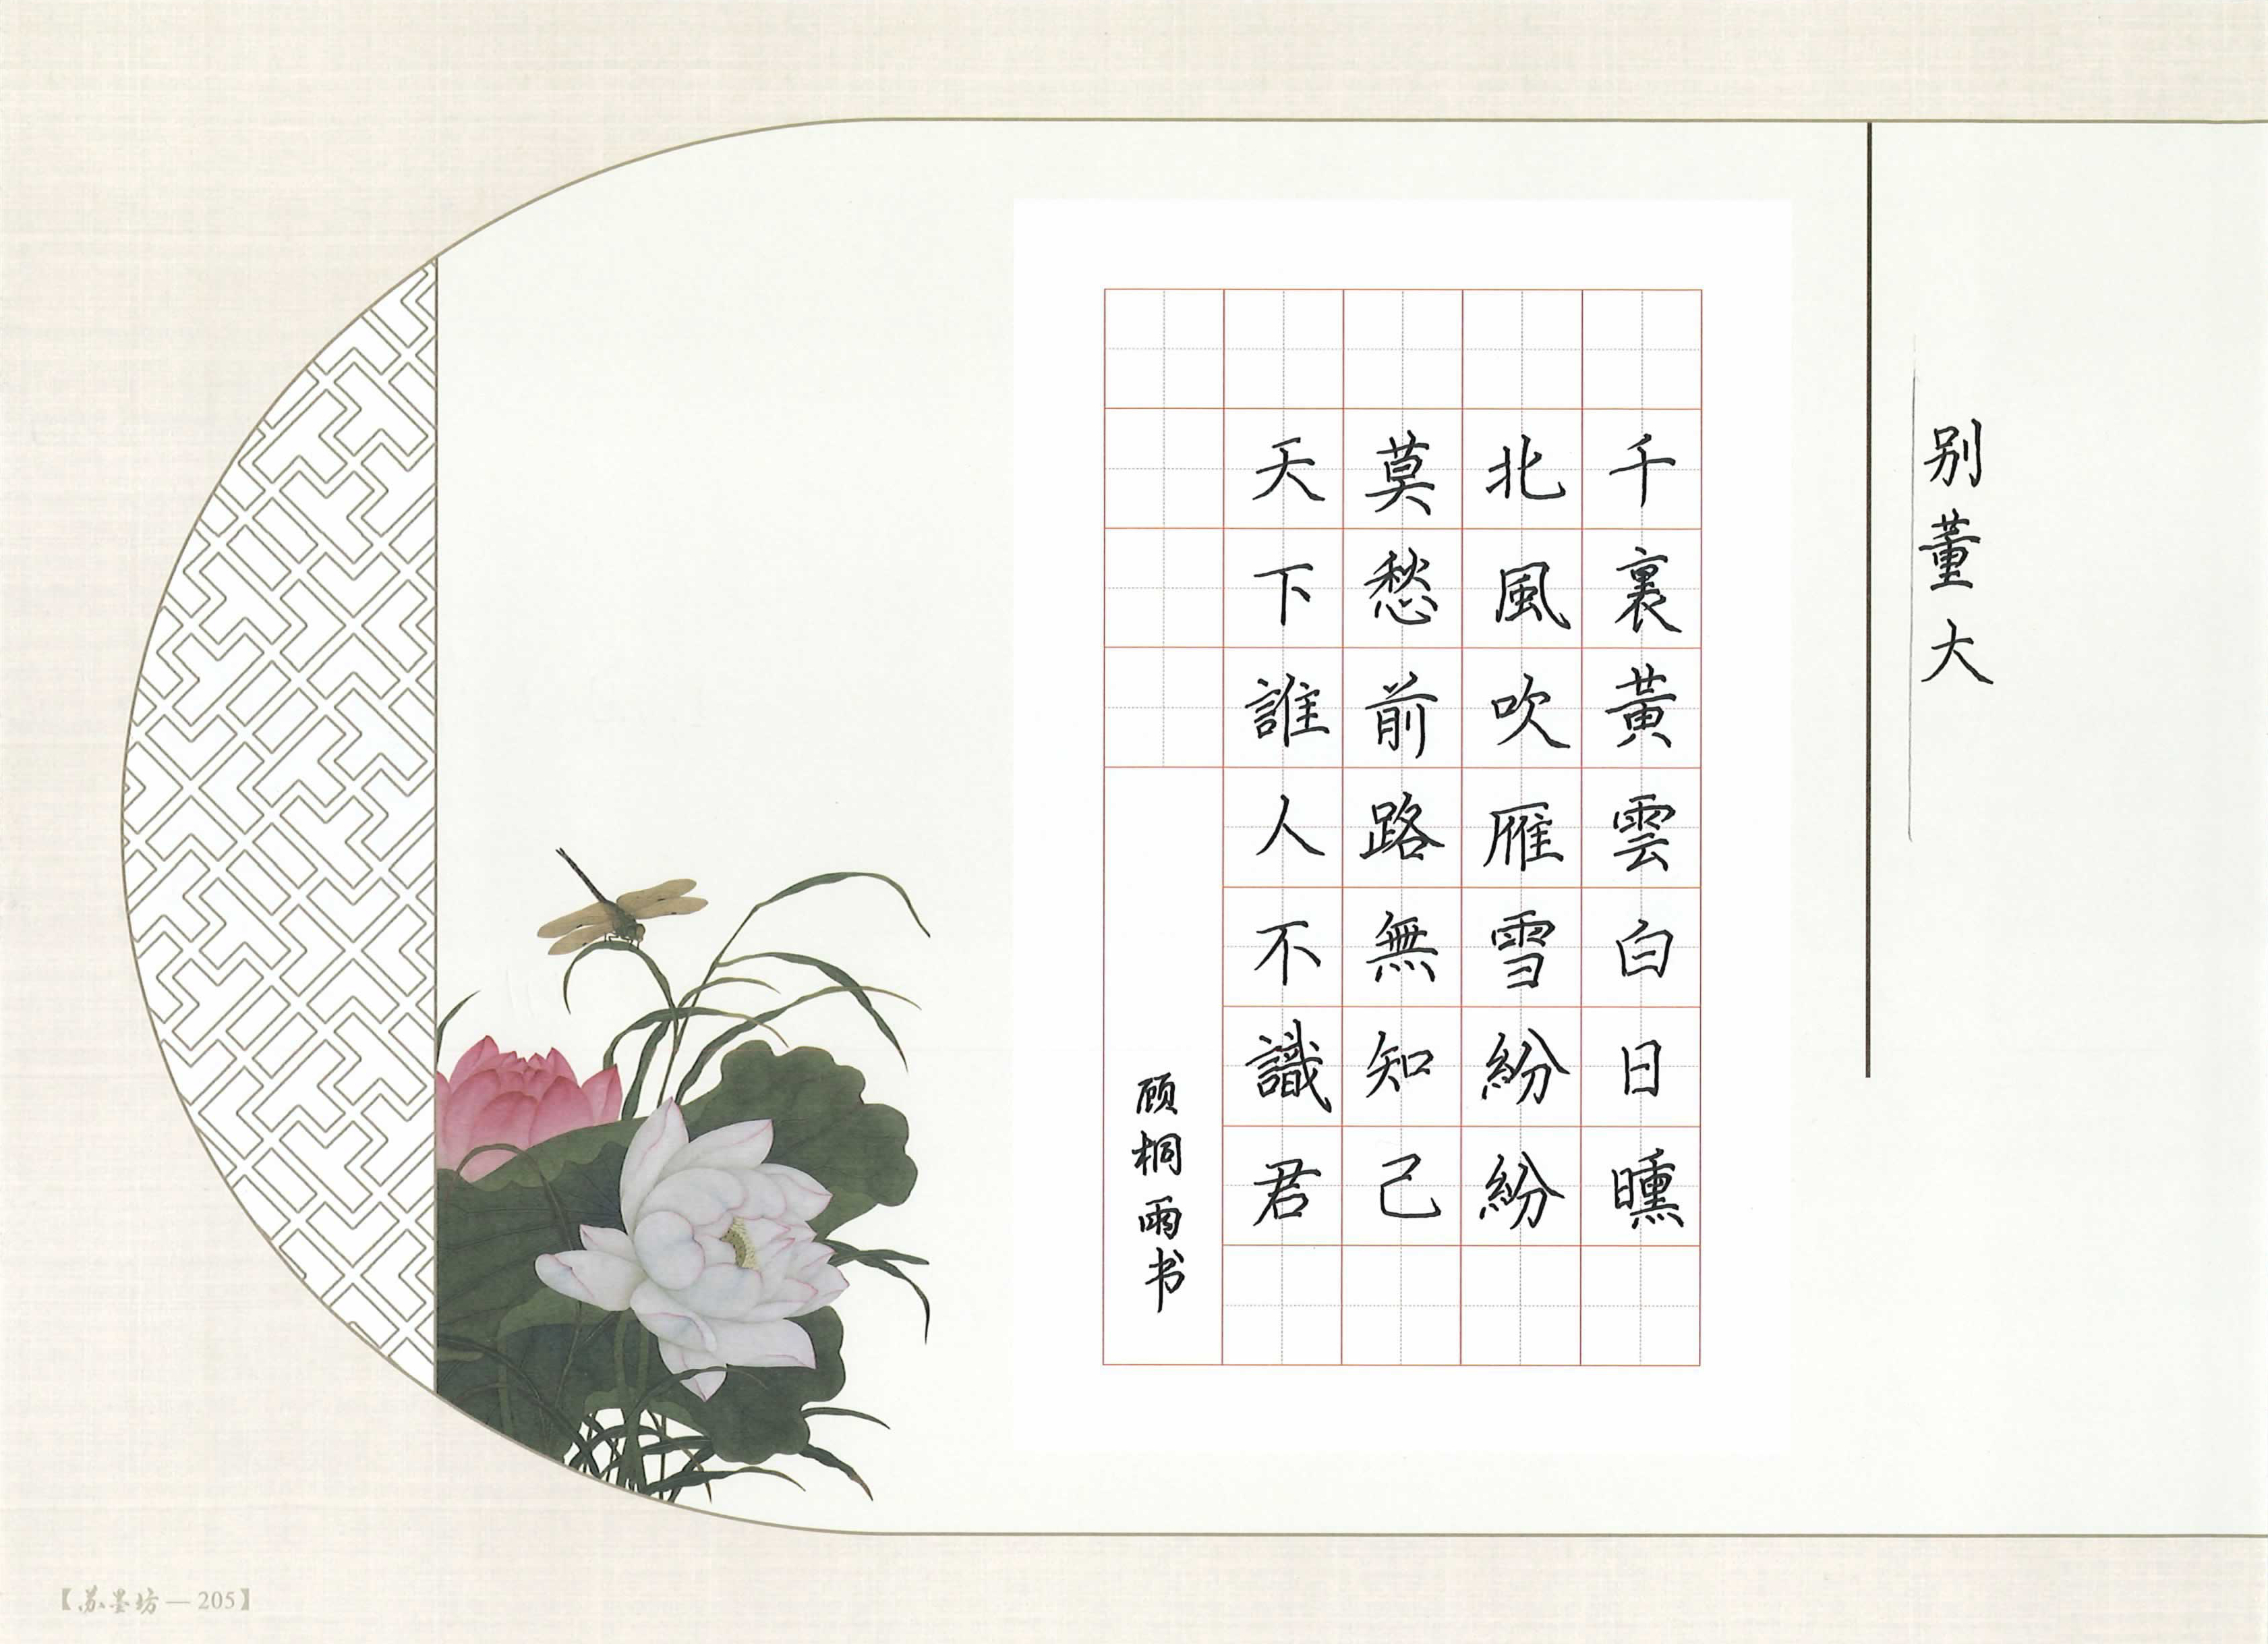 别董大
千裏黃雲白日曛
北風吹雁雪紛紛
莫愁前路無知己
天下誰人不識君
顾桐雨书
【苏墨坊—205】